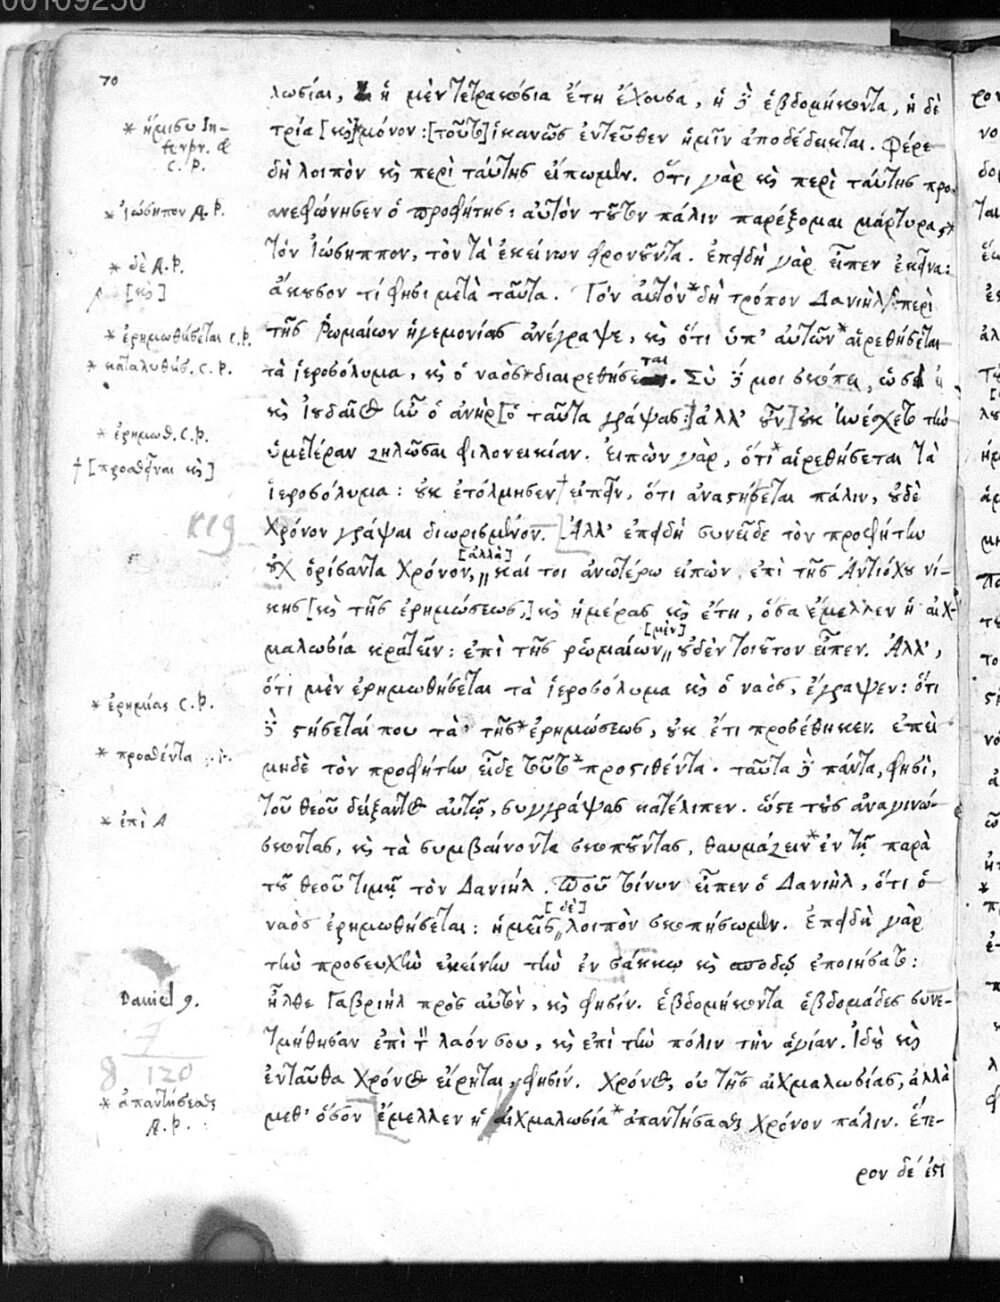 00109250
70
λωσίαι, ἡ μὲν τετρακόσια ἔτη ἔχουσα, ἡ δὲ ἑβδομήκοντα, ἡ δὲ
* ἥμισυ In-
terpr. &
C. P.
τρία [κỳ] μόνον: [τοῦτο] ἱκανῶς ἐντεῦθεν ἡμῖν ἀποδέδεικται. Φέρε
δὴ λοιπὸν κỳ περὶ ταύτης εἴπωμεν. Ὅτι γὰρ κỳ περὶ ταύτης προ-
* Ἰώσηπον A. P.
ανεφώνησεν ὁ προφήτης: αὐτὸν τοῦτον πάλιν παρέξομαι μάρτυρα,*
τὸν Ἰώσηππον, τὸν τὰ ἐκείνων φρονοῦντα. ἐπειδὴ γὰρ εἶπεν ἐκεῖνα:
* δὲ A. P.
[κỳ]
ἄκουσον τί φησι μετὰ ταῦτα. Τὸν αὐτὸν * δὴ τρόπον Δανιὴλ περὶ
* ἐρημωθήσεται C. P.
τῆς Ῥωμαίων ἡγεμονίας ἀνέγραψε, κỳ ὅτι ὑπ' αὐτῶν * αἱρεθήσεται
* καταλυθήσ. C. P.
τὰ ἱεροσόλυμα, κỳ ὁ ναὸς * διαιρεθήσεται. Σὺ δέ μοι σκόπει, ὡς εἰ
κỳ Ἰουδαῖος ἦν ὁ ἀνὴρ [ὁ ταῦτα γράψας:] ἀλλ' οὖν] οὐκ ἠνέσχετο τὴν
* ἐρημωθ. C. P.
ὑμετέραν ζηλῶσαι φιλονεικίαν. Εἰπὼν γὰρ, ὅτι * αἱρεθήσεται τὰ
† [προσθεῖναι κỳ]
ἱεροσόλυμα: οὐκ ἐτόλμησεν † εἰπεῖν, ὅτι ἀναστήσεται πάλιν, οὐδὲ
χρόνον γράψαι διωρισμένον. Ἀλλ' ἐπειδὴ συνεῖδε τὸν προφήτην
[ἀλλὰ]
οὐχ ὁρίσαντα χρόνον, καί τοι ἀνωτέρω εἰπὼν ἐπὶ τῆς Ἀντιόχου νί-
κης [κỳ τῆς ἐρημώσεως,] κỳ ἡμέρας κỳ ἔτη, ὅσα ἔμελλεν ἡ αἰχ-
[μὲν]
μαλωσία κρατεῖν: ἐπὶ τῆς ῥωμαίων οὐδὲν τοιοῦτον εἶπεν. Ἀλλ',
ὅτι μὲν ἐρημωθήσεται τὰ ἱεροσόλυμα κỳ ὁ ναὸς, ἔγραψεν: ὅτι
* ἐρημίας C. P.
δὲ στήσεταί που τὰ τῆς * ἐρημώσεως, οὐκ ἔτι προσέθηκεν. ἐπεὶ
* προσθέντα
μηδὲ τὸν προφήτην εἶδε τοῦτο * προστιθέντα. ταῦτα δὲ πάντα, φησὶ,
τοῦ θεοῦ δείξαντος αὐτῷ, συγγράψας κατέλιπεν. ὥστε τοὺς ἀναγινώ-
* ἐπὶ A
σκοντας, κỳ τὰ συμβαίνοντα σκοποῦντας, θαυμάζειν * ἐν τῇ παρὰ
τοῦ θεοῦ τιμῇ τὸν Δανιήλ. Ποῦ τοίνυν εἶπεν ὁ Δανιὴλ, ὅτι ὁ
[δὲ]
ναὸς ἐρημωθήσεται: ἡμεῖς λοιπὸν σκοπήσωμεν. Ἐπειδὴ γὰρ
τὴν προσευχὴν ἐκείνην τὴν ἐν σάκκῳ κỳ σποδῷ ἐποιήσατο:
Daniel 9.
ἦλθε Γαβριὴλ πρὸς αὐτὸν, κỳ φησίν. ἑβδομήκοντα ἑβδομάδες συνε-
τμήθησαν ἐπὶ τὸν λαόν σου, κỳ ἐπὶ τὴν πόλιν τὴν ἁγίαν. Ἰδοὺ κỳ
120
ἐνταῦθα χρόνος εἴρηται, φησίν. Χρόνος, οὐ τῆς αἰχμαλωσίας, ἀλλὰ
* ἀπαντήσεσθαι
A. P.
μεθ' ὅσον ἔμελλεν ἡ αἰχμαλωσία * ἀπαντήσασθαι χρόνον πάλιν. ἕτε-
ρον δέ ἐστι